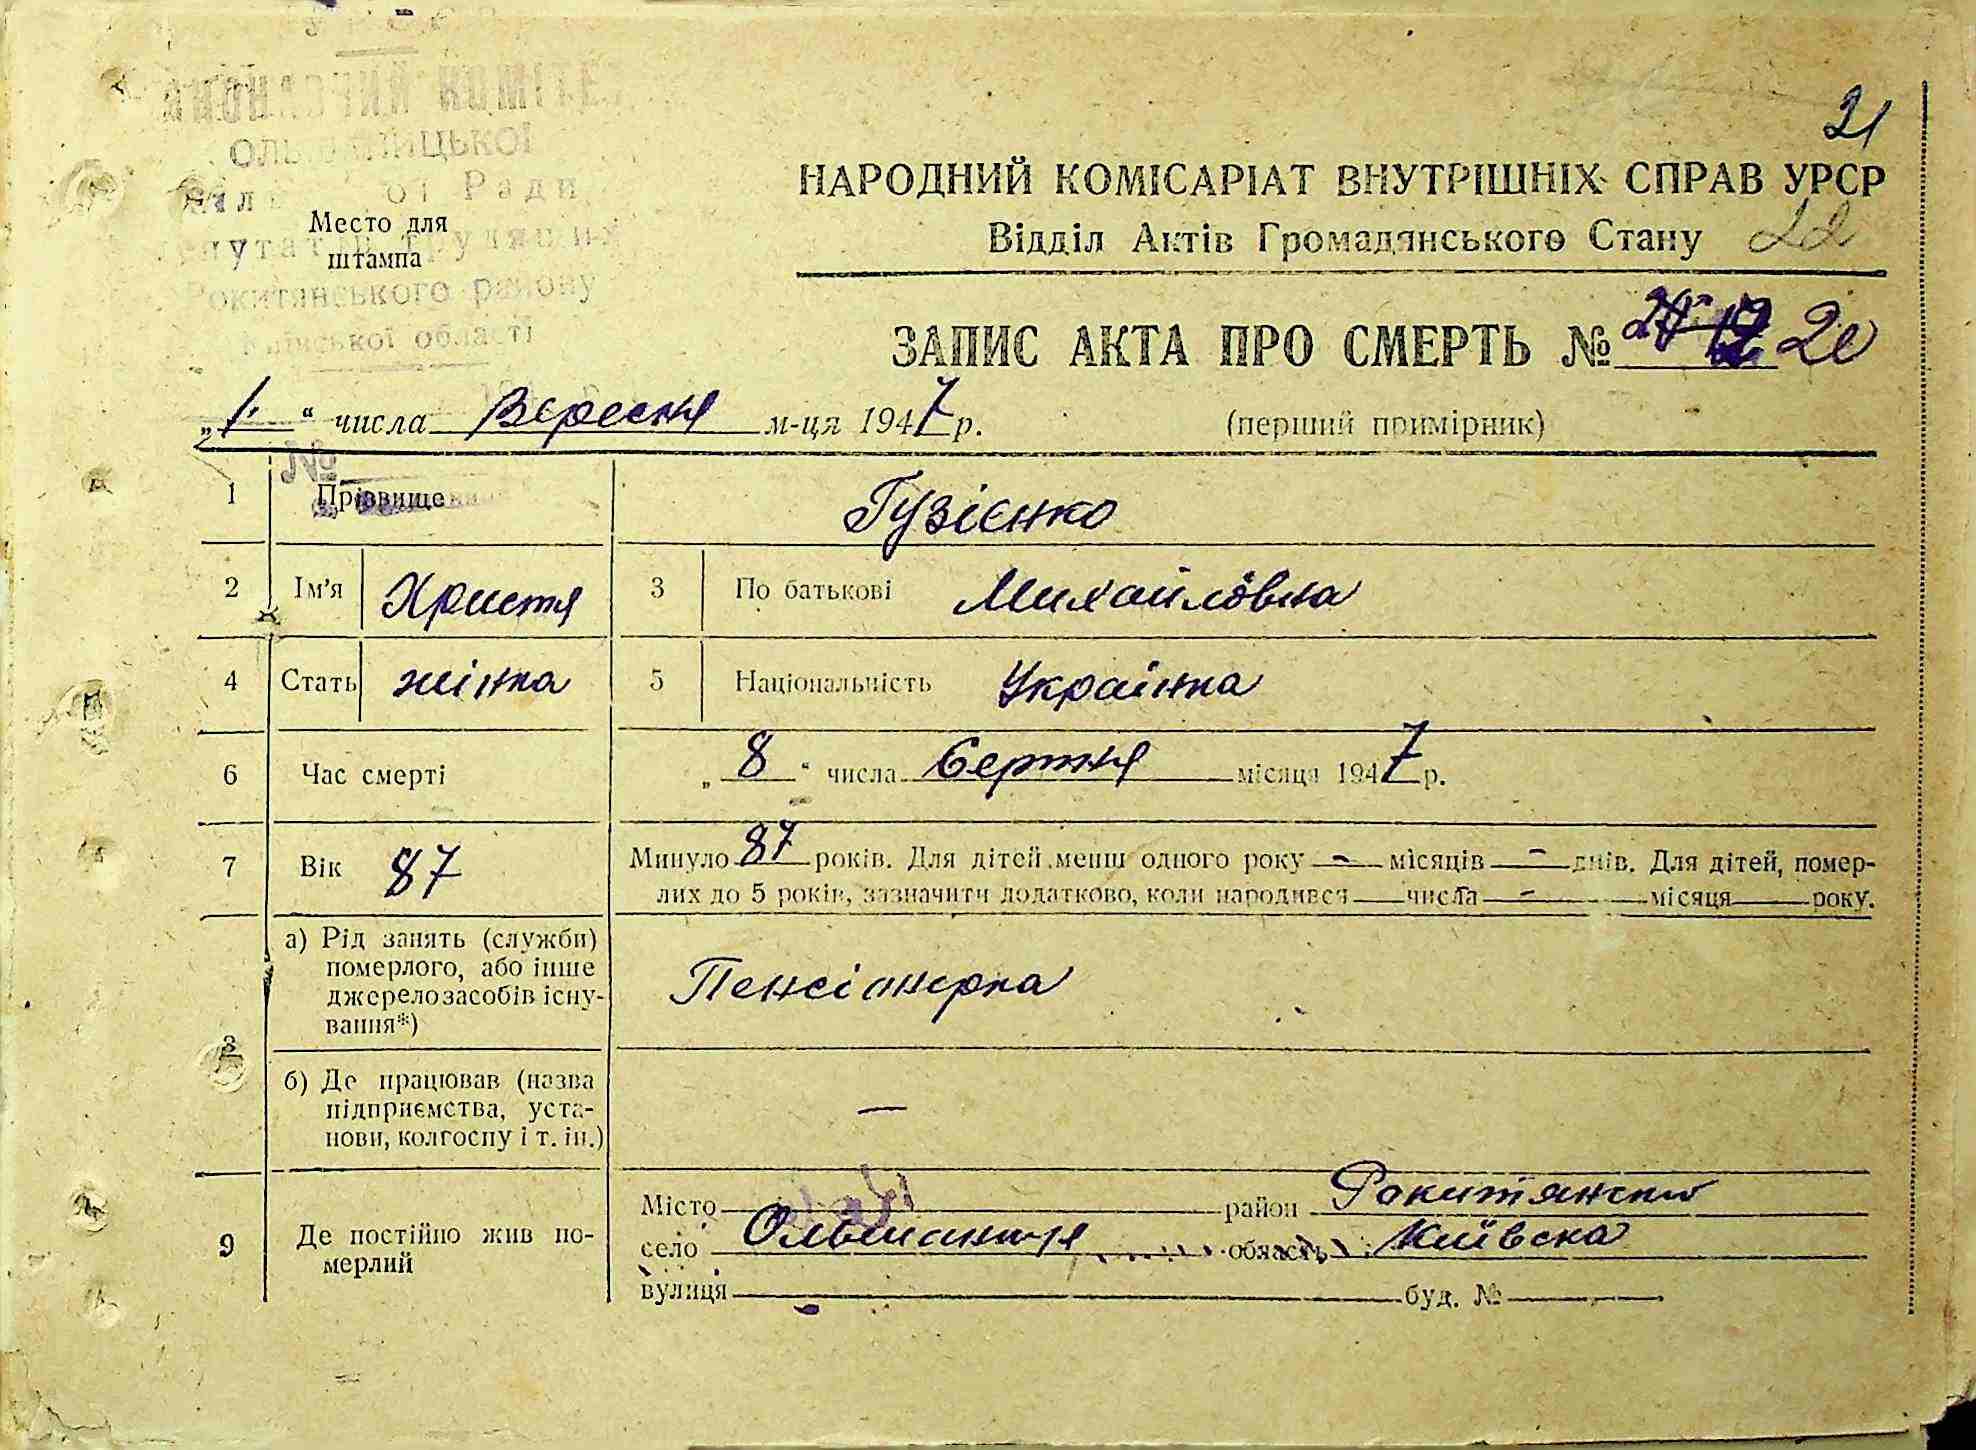 21
НАРОДНИЙ КОМІСАРІАТ ВНУТРІШНІХ СПРАВ УРСР
Відділ Актів Громадянського Стану 22
КОМІТЕТ
ОЛЬШАНИЦЬКОЇ
Ради
Рокитянського району
Київської області
Место для
штампа
ЗАПИС АКТА ПРО СМЕРТЬ № 20
„1“ числа Вересня м-ця 1947 р. (перший примірник)
№
1 Прізвище Гузієнко
2 Ім'я Христя 3 По батькові Михайловна
4 Стать жінка 5 Національність Українка
6 Час смерті „8“ числа Серпня місяця 1947 р.
7 Вік 87 Минуло 87 років. Для дітей менш одного року - місяців - днів. Для дітей, помер-
лих до 5 років, зазначити додатково, коли народився числа - місяця року.
а) Рід занять (служби)
померлого, або інше
джерело засобів існу-
вання*) Пенсіонерка
8
б) Де працював (назва
підприємства, уста-
нови, колгоспу і т. ін.) —
9 Де постійно жив по-
мерлий
Місто район Рокитянський
село Ольшаниця область Київська
вулиця буд. №